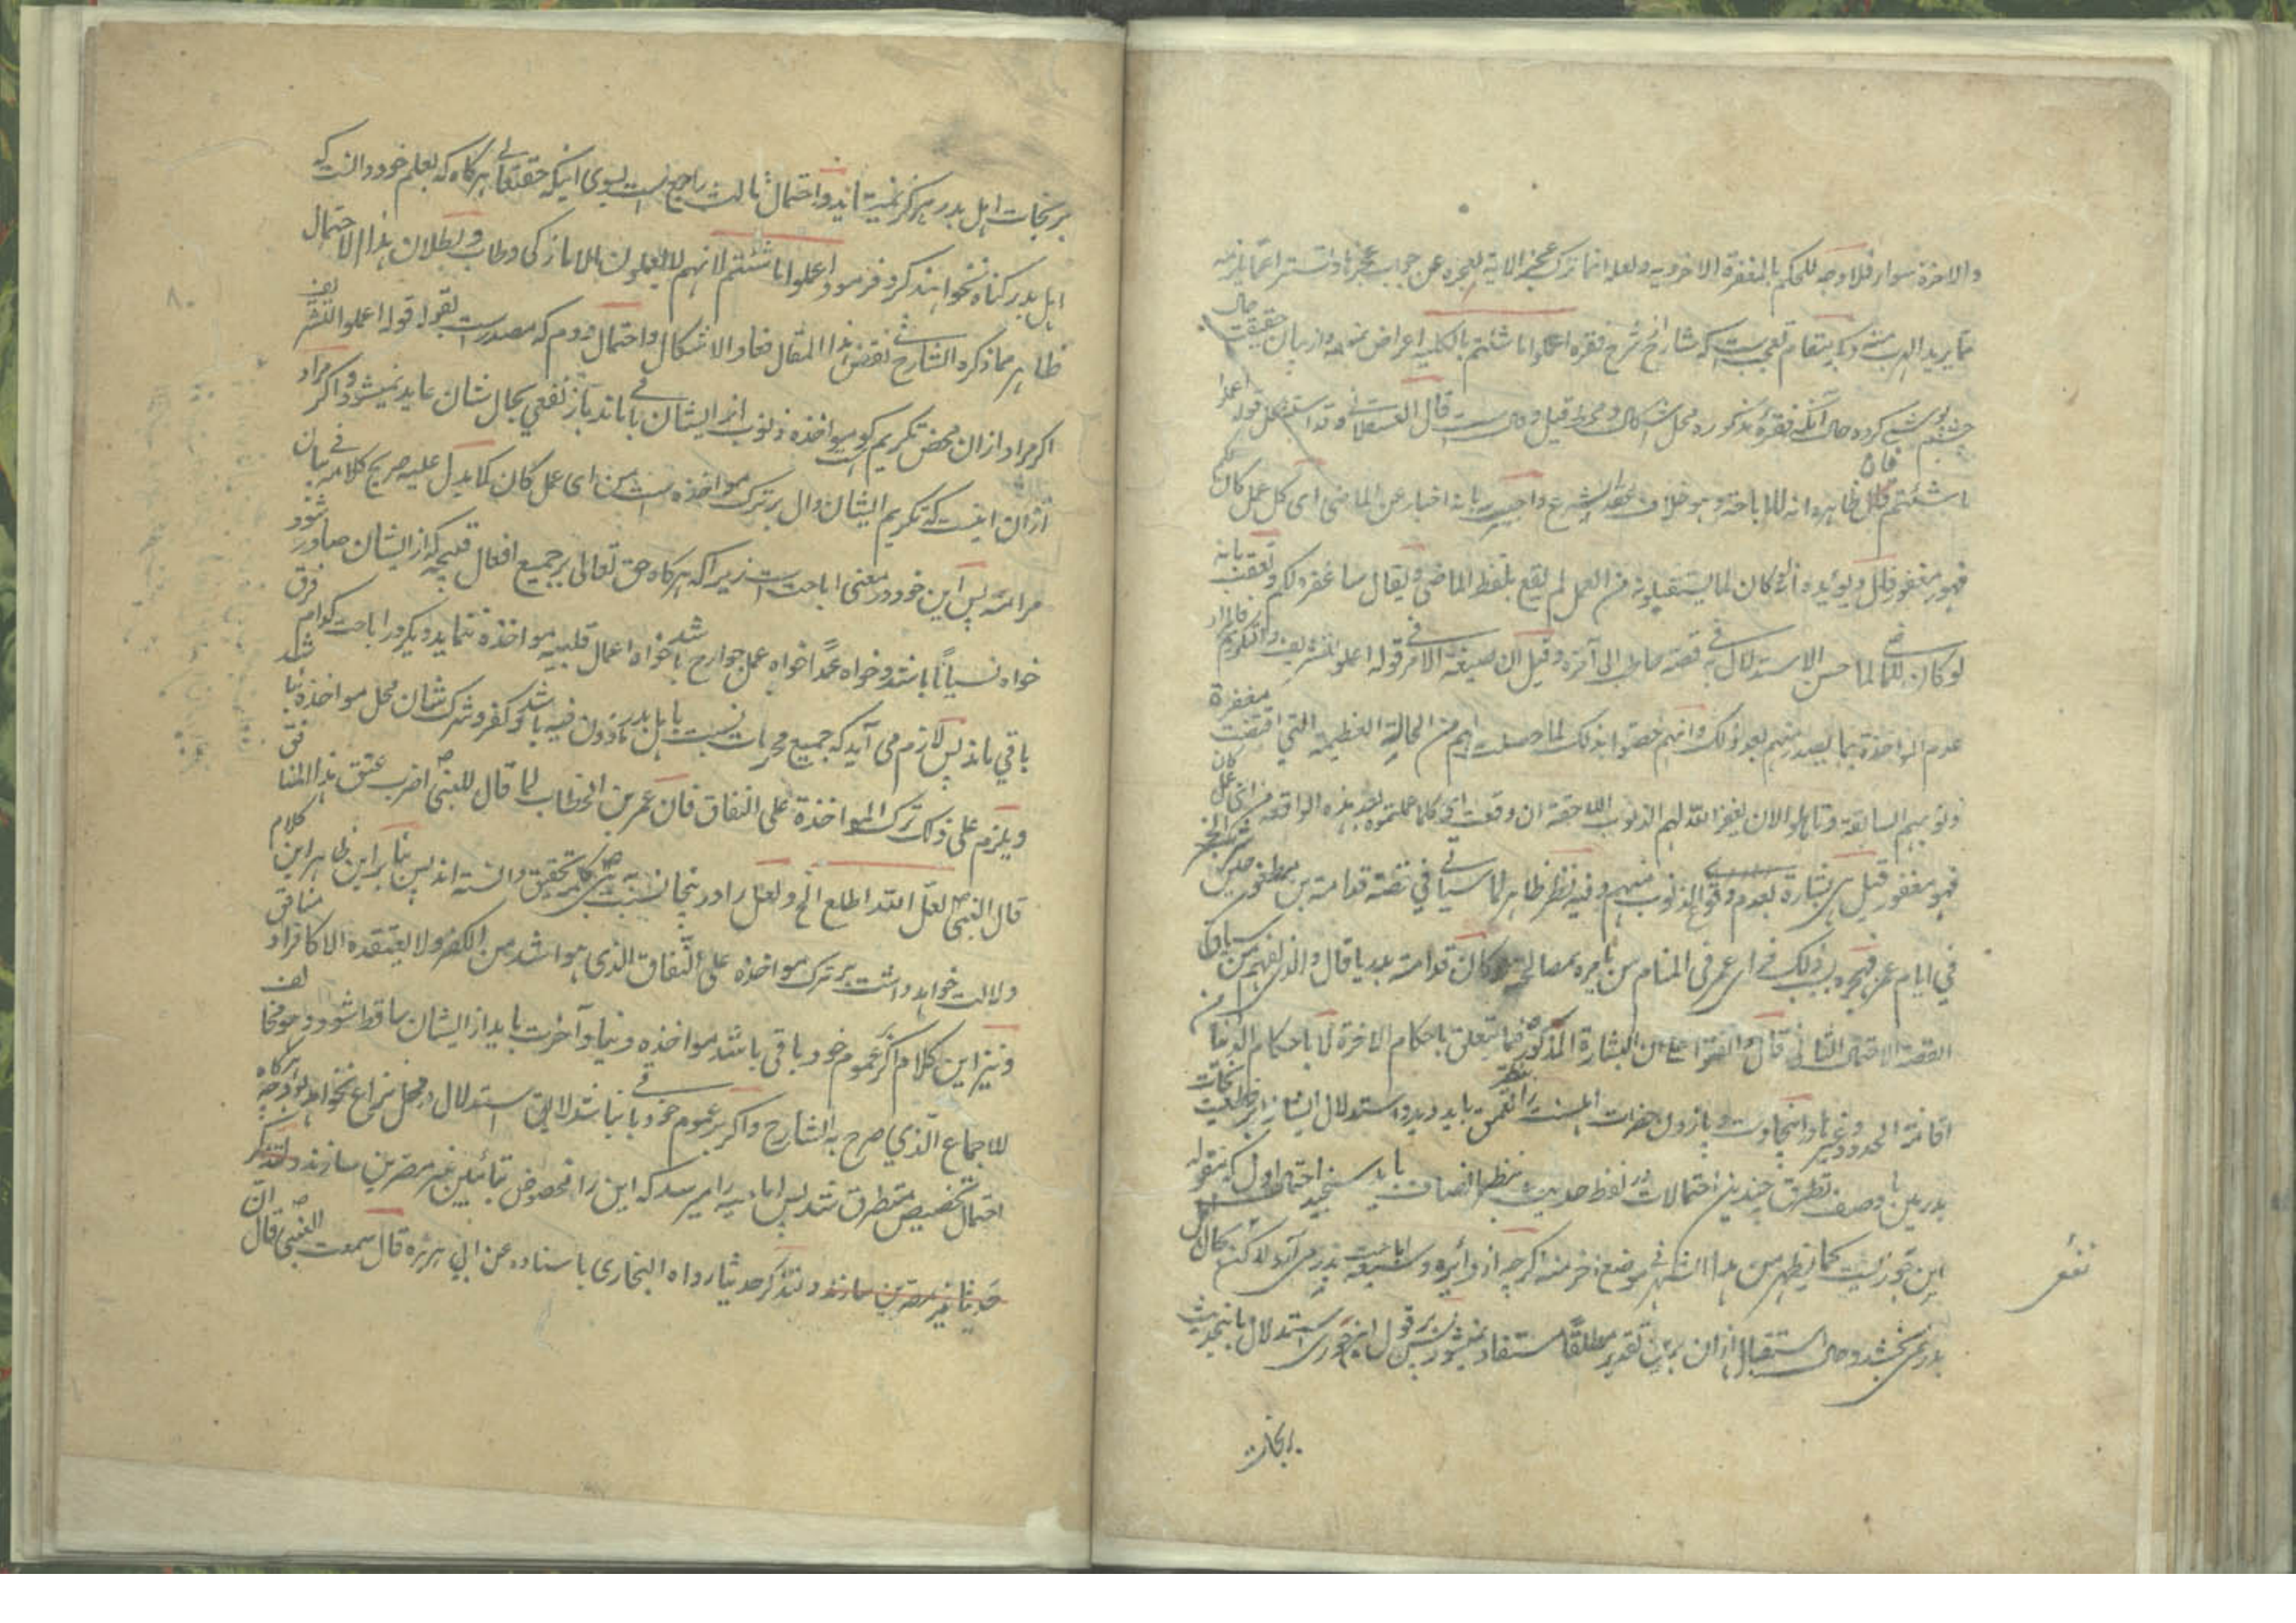 والاخرة سواء فلا وجه للحكم بالمغفرة الاخروية ولعله انما ترك عجز الاية لعجزه عن جواب عجزها وتستر اعما يلزمه
مما يريد الهرب منه ودرينمقام تعجب ست که شارح شرح فقره اعملوا ما شئتم بالكليه اعراض نموده واز بيان حقيقت حال
چشم پوشی کرده حال آنکه فقرۀ مذکوره محل اشکال ومحط قيل وقال ست قال القسطلانی وقد استشکل قوله اعملوا
ما شئتم فان ظاهره انه للاباحة وهو خلاف عقد الشرع واجيب بانه اخبار عن الماضى اى كل عمل كان لكم
فهو مغفور قيل ويؤيده انه لو كان لما يستقبلونه من العمل لم يقع بلفظ الماضى ويقال ساغفره لكم وتعقب بانه
لو كان للماضی لما حسن الاستدلال به فی قصة حاطب الى آخره وقيل ان صيغة الامر فی قوله اعملوا للتشريف والتكريم فالمراد
عدم المواخذة بما يصدر منهم بعد ذلك وانهم خصوا بذلك لما حصلت لهم من الحالة العظيمة التى اقتضت مغفرة
ذنوبهم السابقة وتاهلوا لان يغفر الله لهم الذنوب اللاحقة ان وقعت اى كلما عملتموه بعد هذه الواقعة من اى عمل كان
فهو مغفور وقيل هى بشارة بعدم وقوع الذنوب منهم وفيه نظر ظاهر لما سياتی فى قصة قدامة بن مظعون حين شرب الخمر
فى ايام عمر فهجره بسبب ذلك فراى عمر فى المنام من يامره بمصالحته وكان قدامة بدريا قال والذى يفهم من سياق
القصة الاحتمال الثانى قال واتفقوا على ان البشارة المذكورة فيما يتعلق باحكام الاخرة لا باحكام الدنيا من
اقامة الحدود وغيرها در اينجا دست وپا زدن حضرات اهلسنت را بنظر تعمق بايد ديد واستدلال ايشان را بر قطعيت نجات
بدريين با وصف تطرق چندين احتمالات در لفظ حديث بنظر انصاف بايد سنجيد احتمال اول که مقوله
ابن جوزيست كما يظهر من هذا الشرح فی موضع آخر منه اگرچه از دائره وسيعه اباحت بدر می آرد لکن بحال اهل
بدر نفعی نمی بخشد وحال استقبال ازان برين تقدير مطلقاً مستفاد نميشود پس بر قول ابن جوزی استدلال باينحديث
نفعى
بر نجات
بر نجات اهل بدر هرگز نميتواند شد واحتمال ثالث راجع ست بسوی اينکه حقتعالی هرگاه که بعلم خود دانست که
اهل بدر گناه نخواهند کرد فرمود اعملوا ما شئتم لانهم لا يعملون الا ما زکى وطاب وبطلان هذا الاحتمال
ظاهر مما ذكره الشارح فی نقض هذا المقال فعاد الاشكال واحتمال دوم که مصدرست بقوله قوله اعملوا للتشريف
اگر مراد ازان محض تکريم ست گو مواخذه ذنوب از ايشان باقی ماند باز نفعى بحال شان عايد نميشود واگر مراد
ازان اينست که تکريم ايشان دال بر ترک مواخذه ست من اى عمل كان كما يدل عليه صريح كلامه فی بيان
مرامه پس اين خود در معنى اباحت ست زيرا که هرگاه حق تعالى بر جميع افعال قبيحه که از ايشان صادر شود
خواه نسياناً باشد وخواه عمداً خواه عمل جوارح باشد خواه اعمال قلبيه مواخذه ننمايد ديگر در اباحت کدام فرق
باقی ماند پس لازم می آيد که جميع محرمات نسبت باهل بدر ماذون فيه باشد وکفر وشرک شان محل مواخذه نباشد
ويلزم على ذلك ترك المواخذة على النفاق فان عمر بن الخطاب لما قال للنبى ص اضرب عنق هذا المنافق
قال النبى ص لعل الله اطلع الخ ولعل را در ينجا نسبت به نبی ص کلمه تحقيق دانسته اند پس بنا بر اين ظاهر اين کلام
دلالت خواهد داشت بر ترک مواخذه على النفاق الذى هو اشد من الكفر ولا يعتقده الا كافر او منافق
ونيز اين کلام اگر بر عموم خود باقی باشد مواخذه دنيا وآخرت بايد از ايشان ساقط شود وهو مخالف
للاجماع الذى صرح به الشارح واگر بر عموم خود باقی نباشد لايق استدلال در محل نزاع نخواهد بود چه هرگاه
احتمال تخصيص متطرق شد پس اماميه را ميرسد که اين را مخصوص بتائبين غير مصرين سازند ولنذكر
حديثا غير مصرين سازند ولنذكر حديثا رواه البخارى باسناده عن ابى هريره قال سمعت النبى ص قال ان